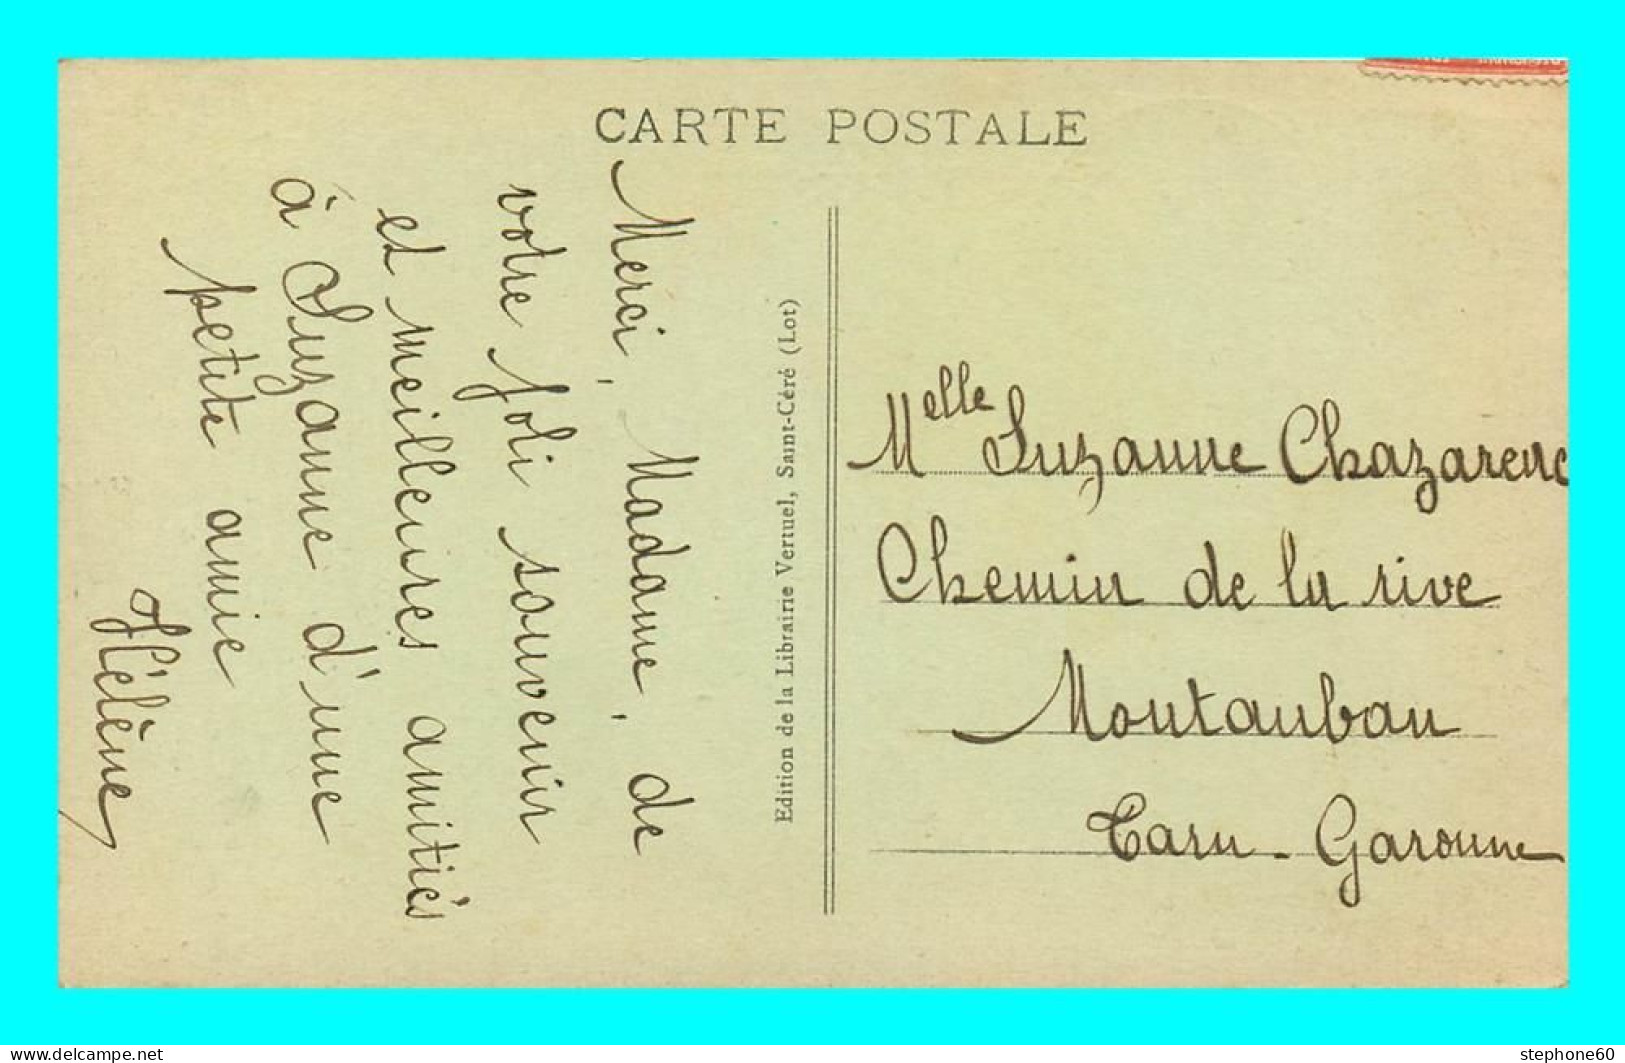 CARTE POSTALE
Merci, Madame, de
votre joli souvenir
et meilleures amitiés
à Suzanne d'une
petite amie
Hélène
Edition de la Librairie Vertuel, Saint-Céré (Lot)
Melle Suzanne Chazarenc
Chemin de la rive
Montauban
Tarn-Garonne
www.delcampe.net
stephone60